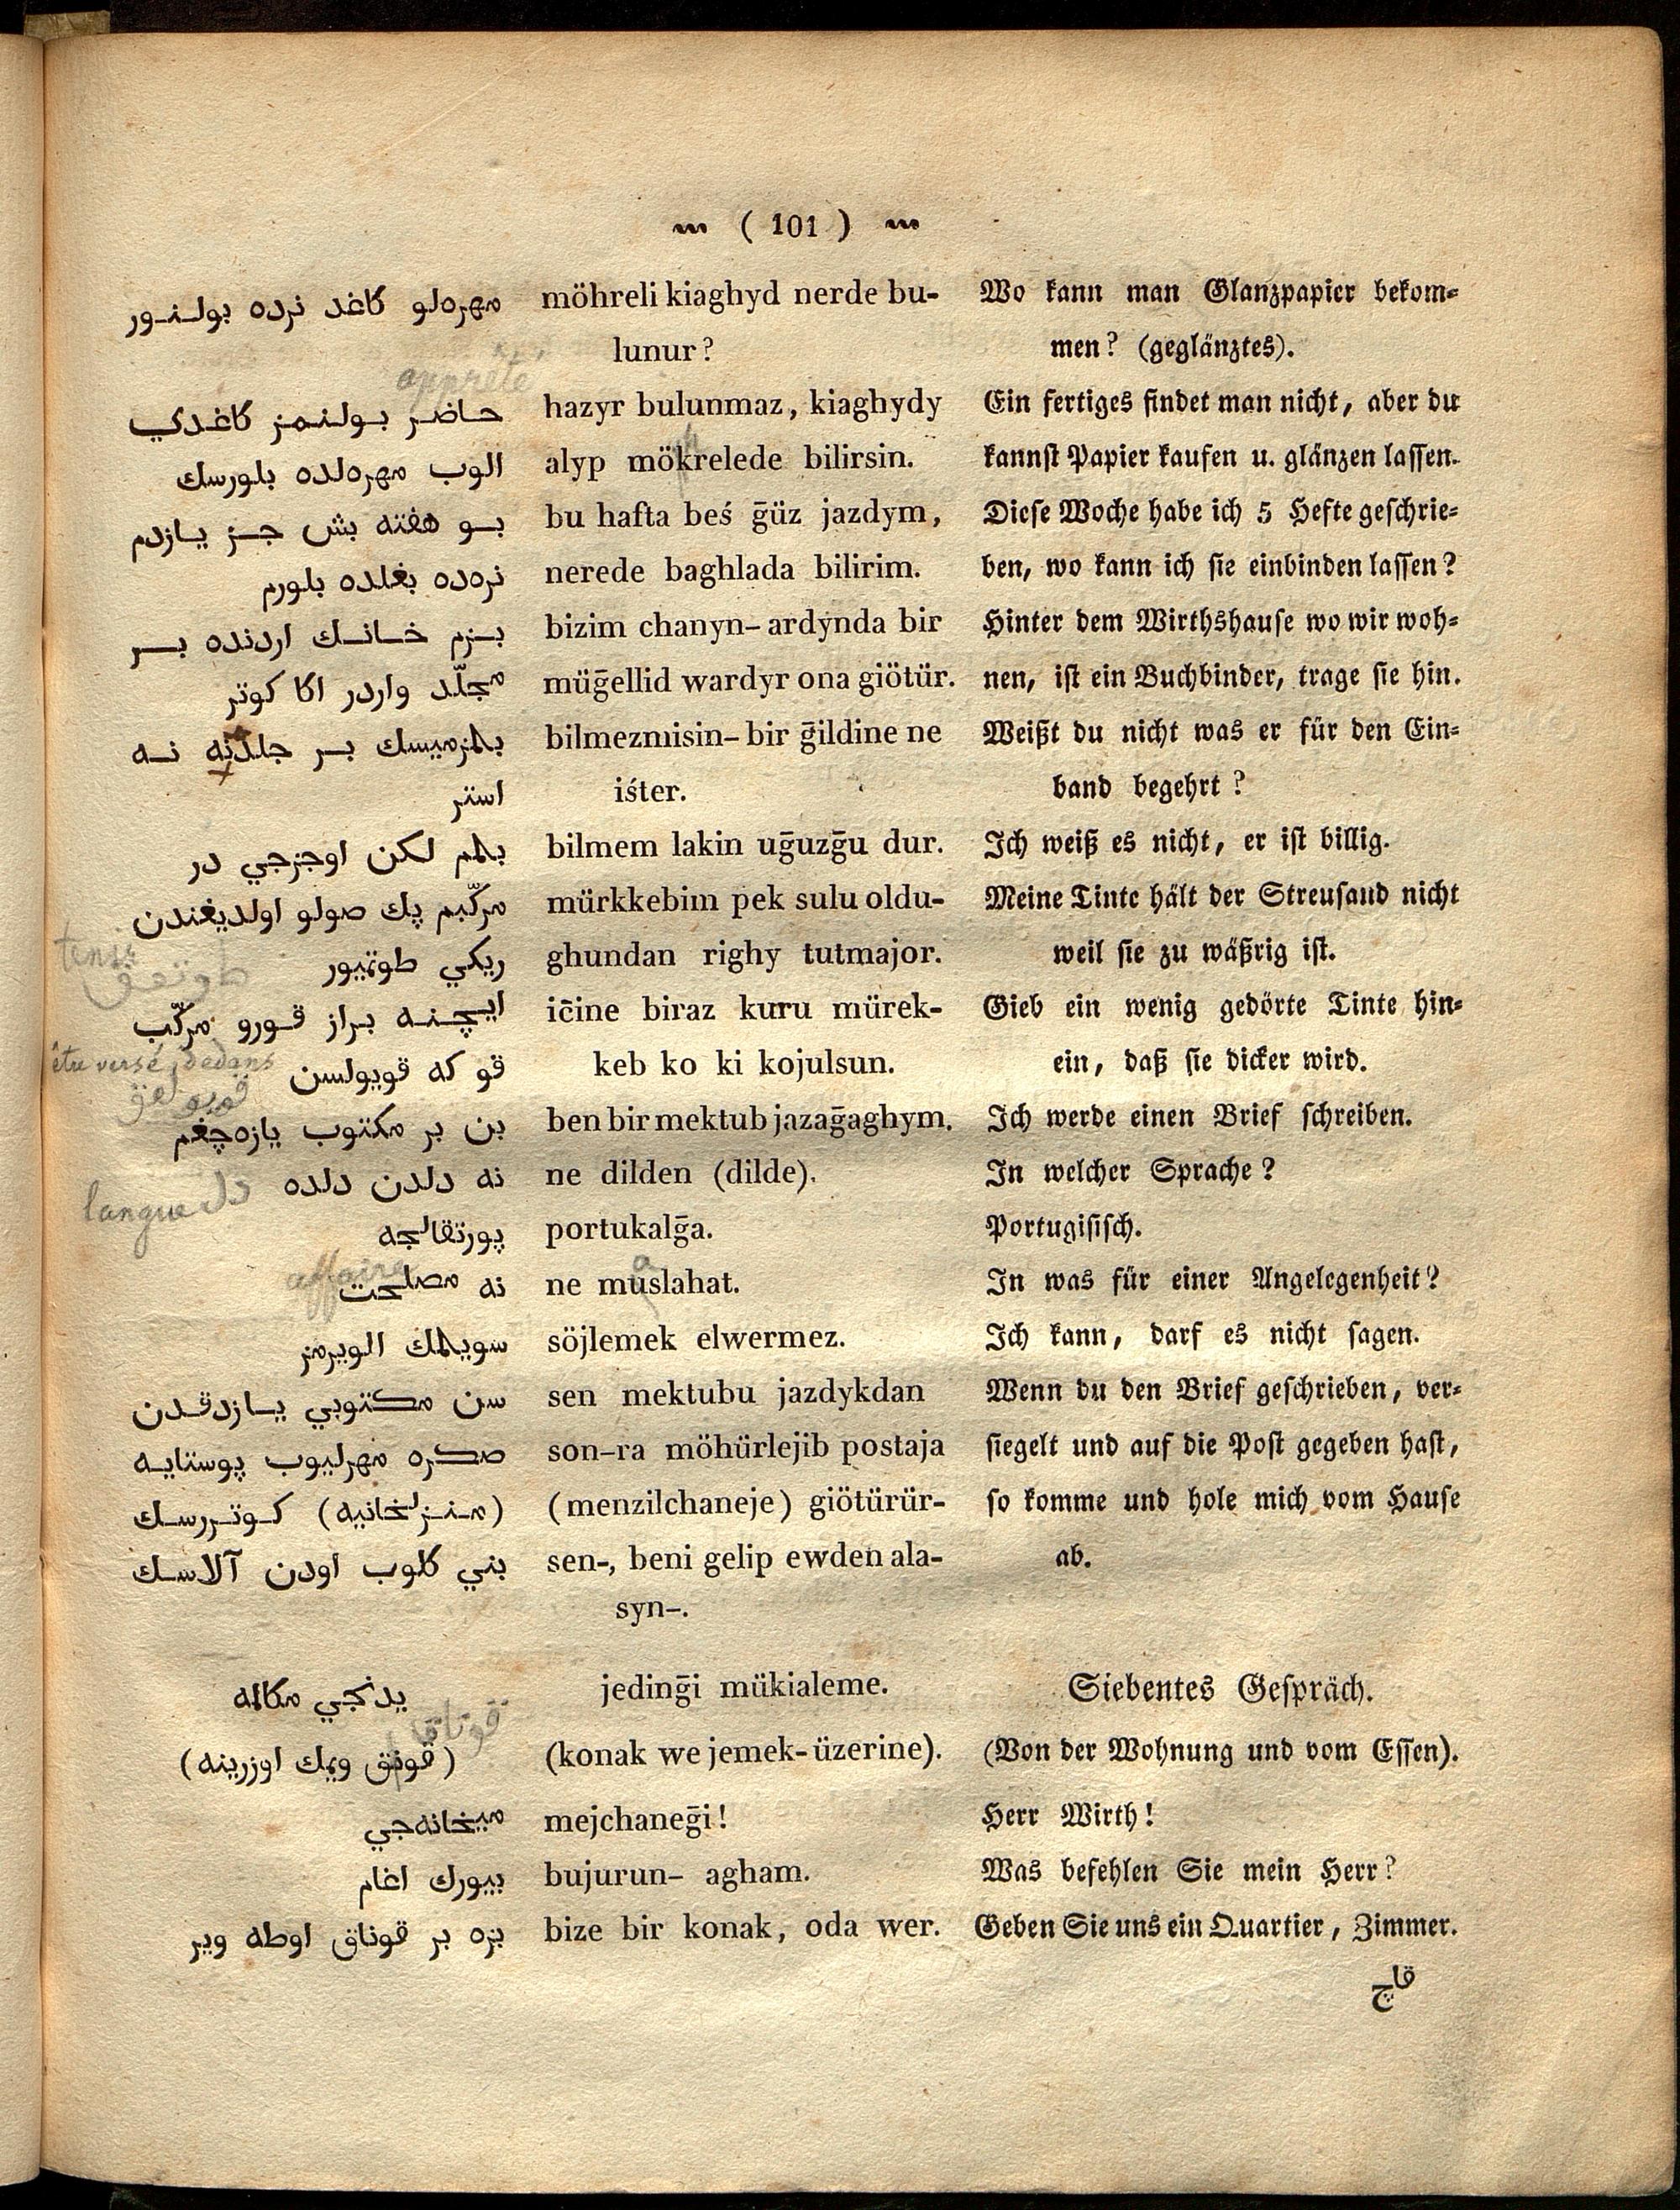 ( 101 )
مهره‌لو كاغد نرده بولنور
حاضر بولنمز كاغدي
الوب مهره‌لده بلورسك
بو هفته بش جز يازدم
نره‌ده بغلده بلورم
بزم خانك اردنده بر
مجلّد واردر اكا كوتر
بلمزميسك بر جلدينه نه
استر
بلمم لكن اوجزجي در
مركّبم پك صولو اولديغندن
ريكي طوتميور
ايچنه براز قورو مركّب
قو كه قويولسن
بن بر مكتوب يازه‌چغم
نه دلدن دلده
پورتقالجه
نه مصلحت
سويلمك الويرمز
سن مكتوبي يازدقدن
صكره مهرليوب پوستايه
(منزلخانيه) كوتررسك
بني كلوب اودن آلاسك
يدنجي مكالمه
(قونق ويمك اوزرينه)
ميخانه‌جي
بيورك اغام
بزه بر قوناق اوطه وير
möhreli kiaghyd nerde bu-
lunur?
hazyr bulunmaz, kiaghydy
alyp mökrelede bilirsin.
bu hafta beś ḡüz jazdym,
nerede baghlada bilirim.
bizim chanyn- ardynda bir
müḡellid wardyr ona giötür.
bilmezmisin- bir ḡildine ne
iśter.
bilmem lakin uḡuzḡu dur.
mürkkebim pek sulu oldu-
ghundan righy tutmajor.
ic̄ine biraz kuru mürek-
keb ko ki kojulsun.
ben bir mektub jazaḡaghym.
ne dilden (dilde).
portukalḡa.
ne muslahat.
söjlemek elwermez.
sen mektubu jazdykdan
son-ra möhürlejib postaja
(menzilchaneje) giötürür-
sen-, beni gelip ewden ala-
syn-.
jedinḡi mükialeme.
(konak we jemek- üzerine).
mejchaneḡi!
bujurun- agham.
bize bir konak, oda wer.
Wo kann man Glanzpapier bekom=
men? (geglänztes).
Ein fertiges findet man nicht, aber du
kannst Papier kaufen u. glänzen lassen.
Diese Woche habe ich 5 Hefte geschrie=
ben, wo kann ich sie einbinden lassen?
Hinter dem Wirthshause wo wir woh=
nen, ist ein Buchbinder, trage sie hin.
Weißt du nicht was er für den Ein=
band begehrt?
Ich weiß es nicht, er ist billig.
Meine Tinte hält der Streusand nicht
weil sie zu wäßrig ist.
Gieb ein wenig gedörte Tinte hin=
ein, daß sie dicker wird.
Ich werde einen Brief schreiben.
In welcher Sprache?
Portugisisch.
In was für einer Angelegenheit?
Ich kann, darf es nicht sagen.
Wenn du den Brief geschrieben, ver=
siegelt und auf die Post gegeben hast,
so komme und hole mich vom Hause
ab.
Siebentes Gespräch.
(Von der Wohnung und vom Essen).
Herr Wirth!
Was befehlen Sie mein Herr?
Geben Sie uns ein Quartier, Zimmer.
قاچ
apprêté
h
tenir
طوتمق
être versé, dedans
قويولمق
langue دل
affaire
a
قوناق